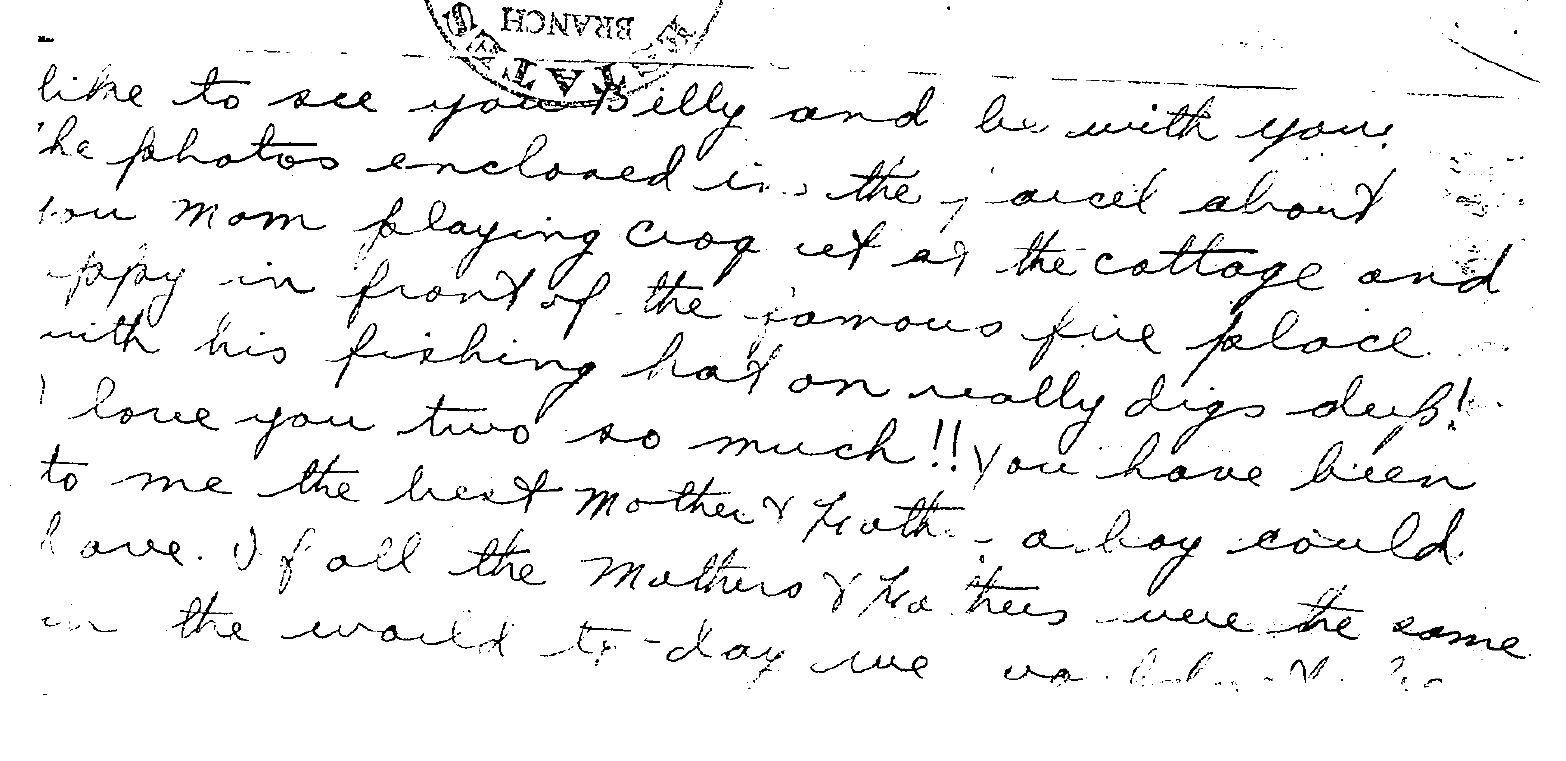 BRANCH
STATES
like to see you Billy and be with you.
The photos enclosed in the parcel about
you Mom playing croquet at the cottage and
Pappy in front of the famous fire place
with his fishing hat on really digs deep!
I love you two so much!! You have been
to me the best Mother & Father a boy could
have. If all the Mothers & Fathers were the same
in the world to-day we